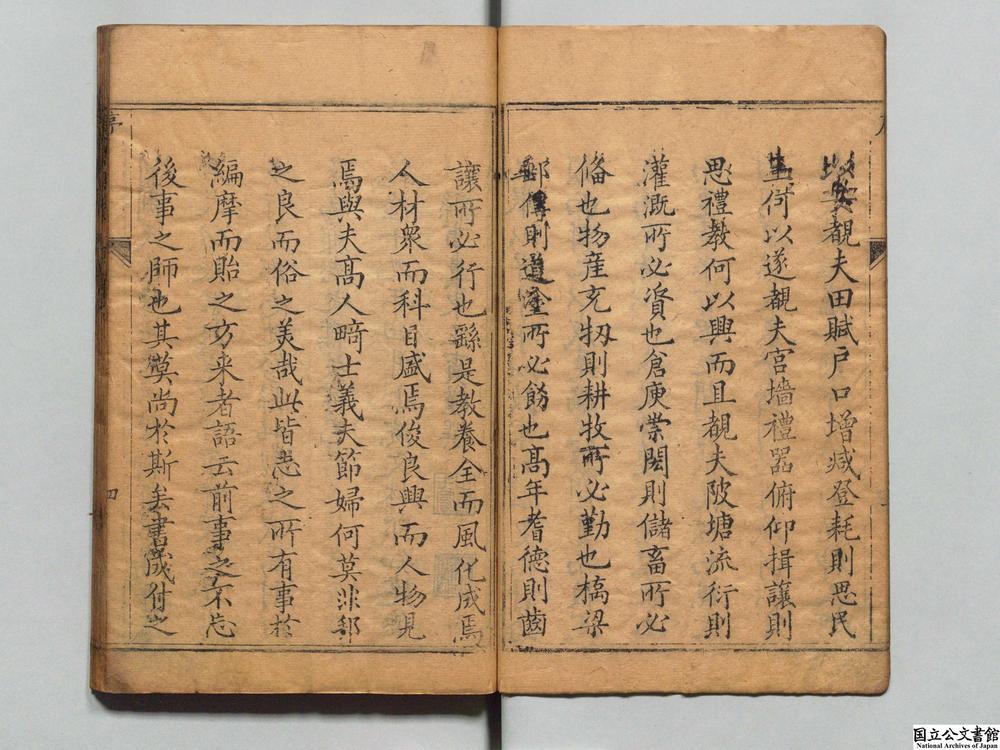 以安覩夫田賦戶口增減登耗則思民
生何以遂覩夫宮墻禮器俯仰揖讓則
思禮教何以興而且覩夫陂塘流衍則
灌溉所必資也倉庾崇閎則儲畜所必
俻也物産充牣則耕牧所必勤也橋梁
郵傳則道塗所必飭也髙年耆德則齒
讓所必行也繇是教養全而風化成焉
人材衆而科目盛焉俊良興而人物見
焉與夫髙人畸士義夫節婦何莫非郡
之良而俗之美哉此皆志之所有事於
編摩而貽之方来者語云前事之不忘
後事之師也其莫尚於斯矣書成付之
序
四
国立公文書館
National Archives of Japan